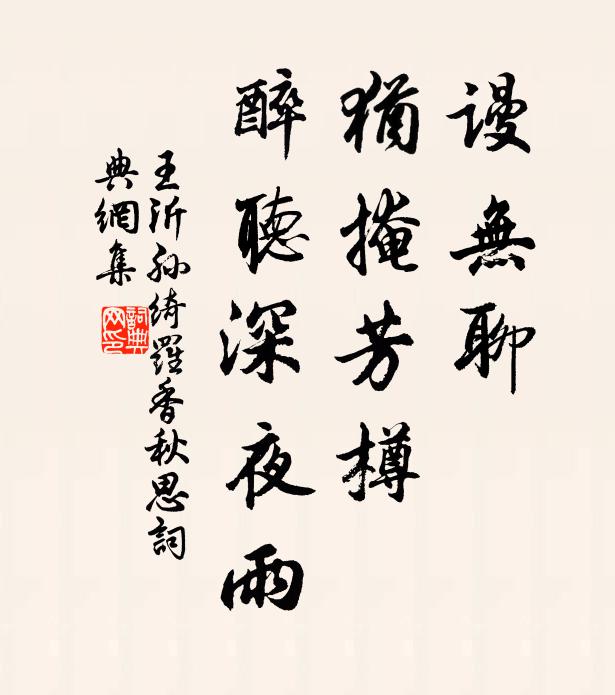 謾無聊
猶掩芳樽
醉聽深夜雨
王沂孫綺羅香秋思詞
典網集
詞典
网印